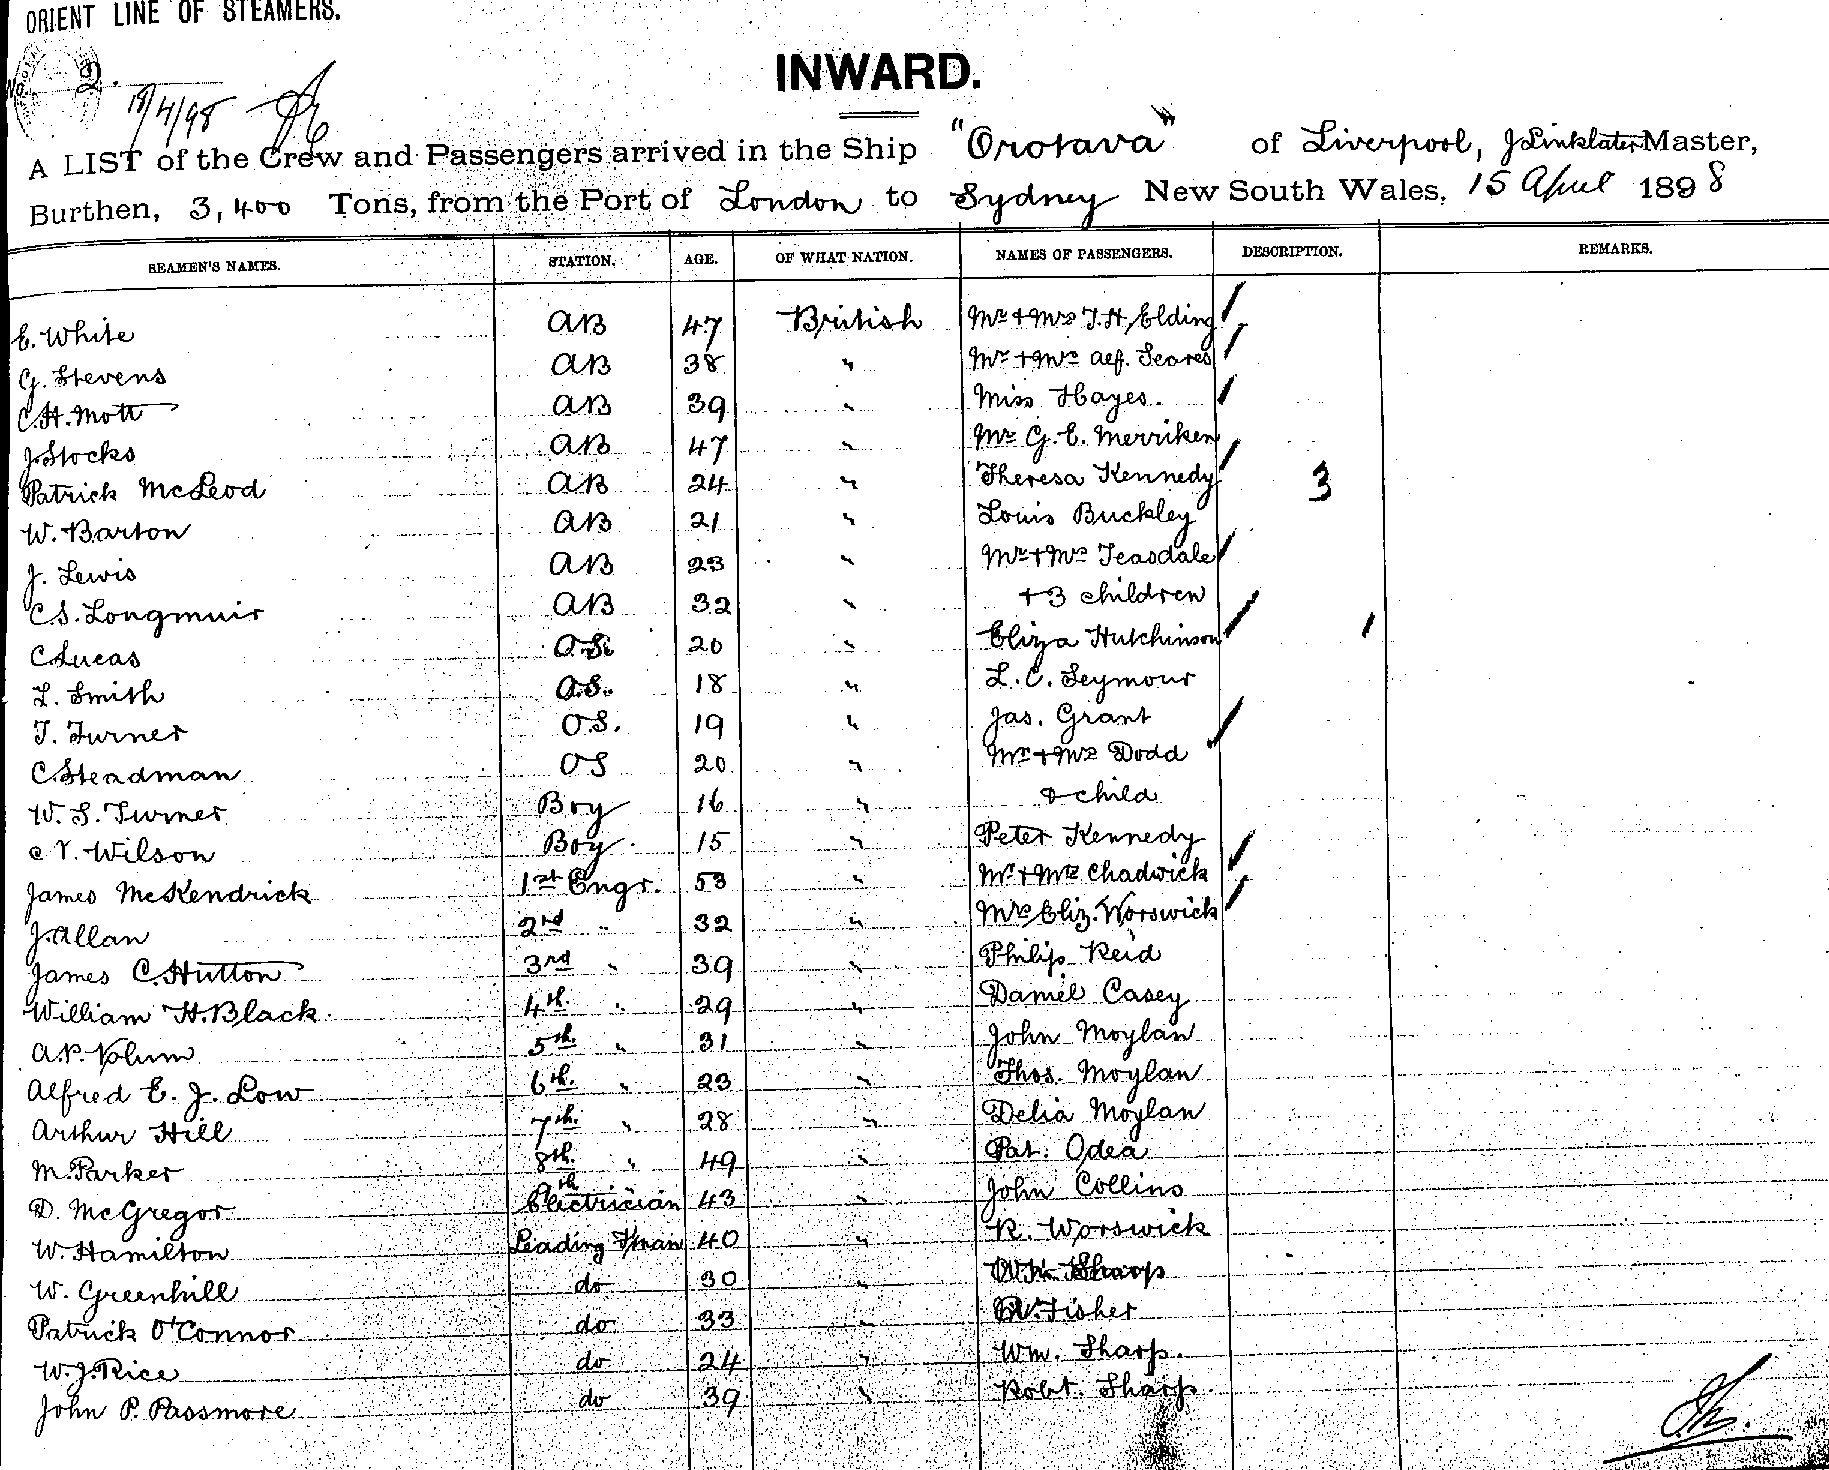 ORIENT LINE OF STEAMERS.
No. 2.
INWARD.
19/4/98
A LIST of the Crew and Passengers arrived in the Ship "Orotava" of Liverpool, J Linklater Master,
Burthen, 3,400 Tons, from the Port of London to Sydney New South Wales, 15 April 1898
SEAMEN'S NAMES. STATION. AGE. OF WHAT NATION. NAMES OF PASSENGERS. DESCRIPTION. REMARKS.
E. White AB 47 British Mr + Mrs T. H. Elding
G. Stevens AB 38 " Mr + Mrs Alf. Seares
C.H. Mott AB 39 " Miss Hayes.
J. Stocks AB 47 " Mr G. E. Merriken
Patrick McLeod AB 24 " Theresa Kennedy 3
W. Barton AB 21 " Louis Buckley
J. Lewis AB 23 " Mr + Mrs Teasdale
C.S. Longmuir AB 32 " + 3 children
C Lucas O.S. 20 " Eliza Hutchinson
L. Smith O.S. 18 " L. C. Seymour
T. Turner O.S. 19 " Jas. Grant
C Steadman OS 20 " Mr + Mrs Dodd
W. S. Turner Boy 16 " & child
Wilson Boy. 15 " Peter Kennedy
James McKendrick 1st Engr. 53 " Mr + Mrs Chadwick
J. Allan 2nd " 32 " Mrs Eliz. Worswick
James C. Hutton 3rd " 39 " Philip Reid
William H. Black. 4th. " 29 " Daniel Casey
A.P. Volum 5th. " 31 " John Moylan
Alfred E. J. Low 6th. " 23 " Thos. Moylan
Arthur Hill 7th. " 28 " Delia Moylan
M. Parker 8th. " 49 " Pat. Odea
D. McGregor Electrician 43 " John Collins
W. Hamilton Leading F/man 40 " R. Worswick
W. Greenhill do 30 " Wm Sharp
Patrick O'Connor do 33 " Fisher
W. J. Rice do 24 " Wm. Sharp.
John P. Passmore do 39 " Robt. Sharp